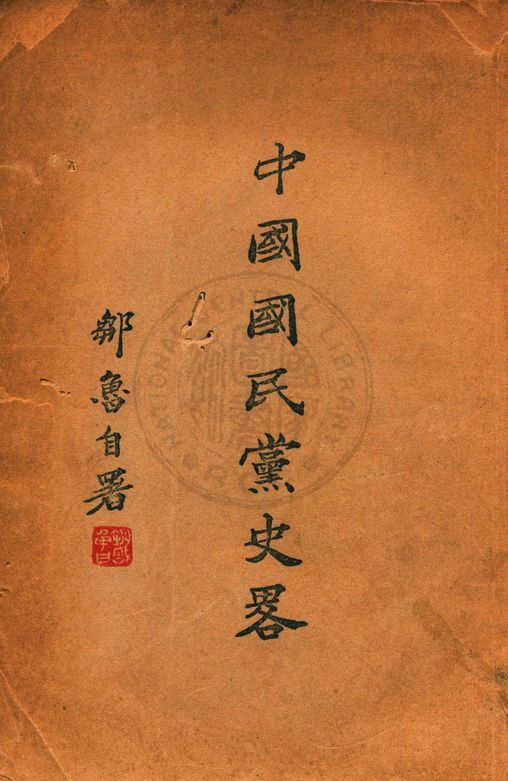 中國國民黨史畧
鄒魯自署
NATIONAL CENTRAL LIBRARY
R.O.C.